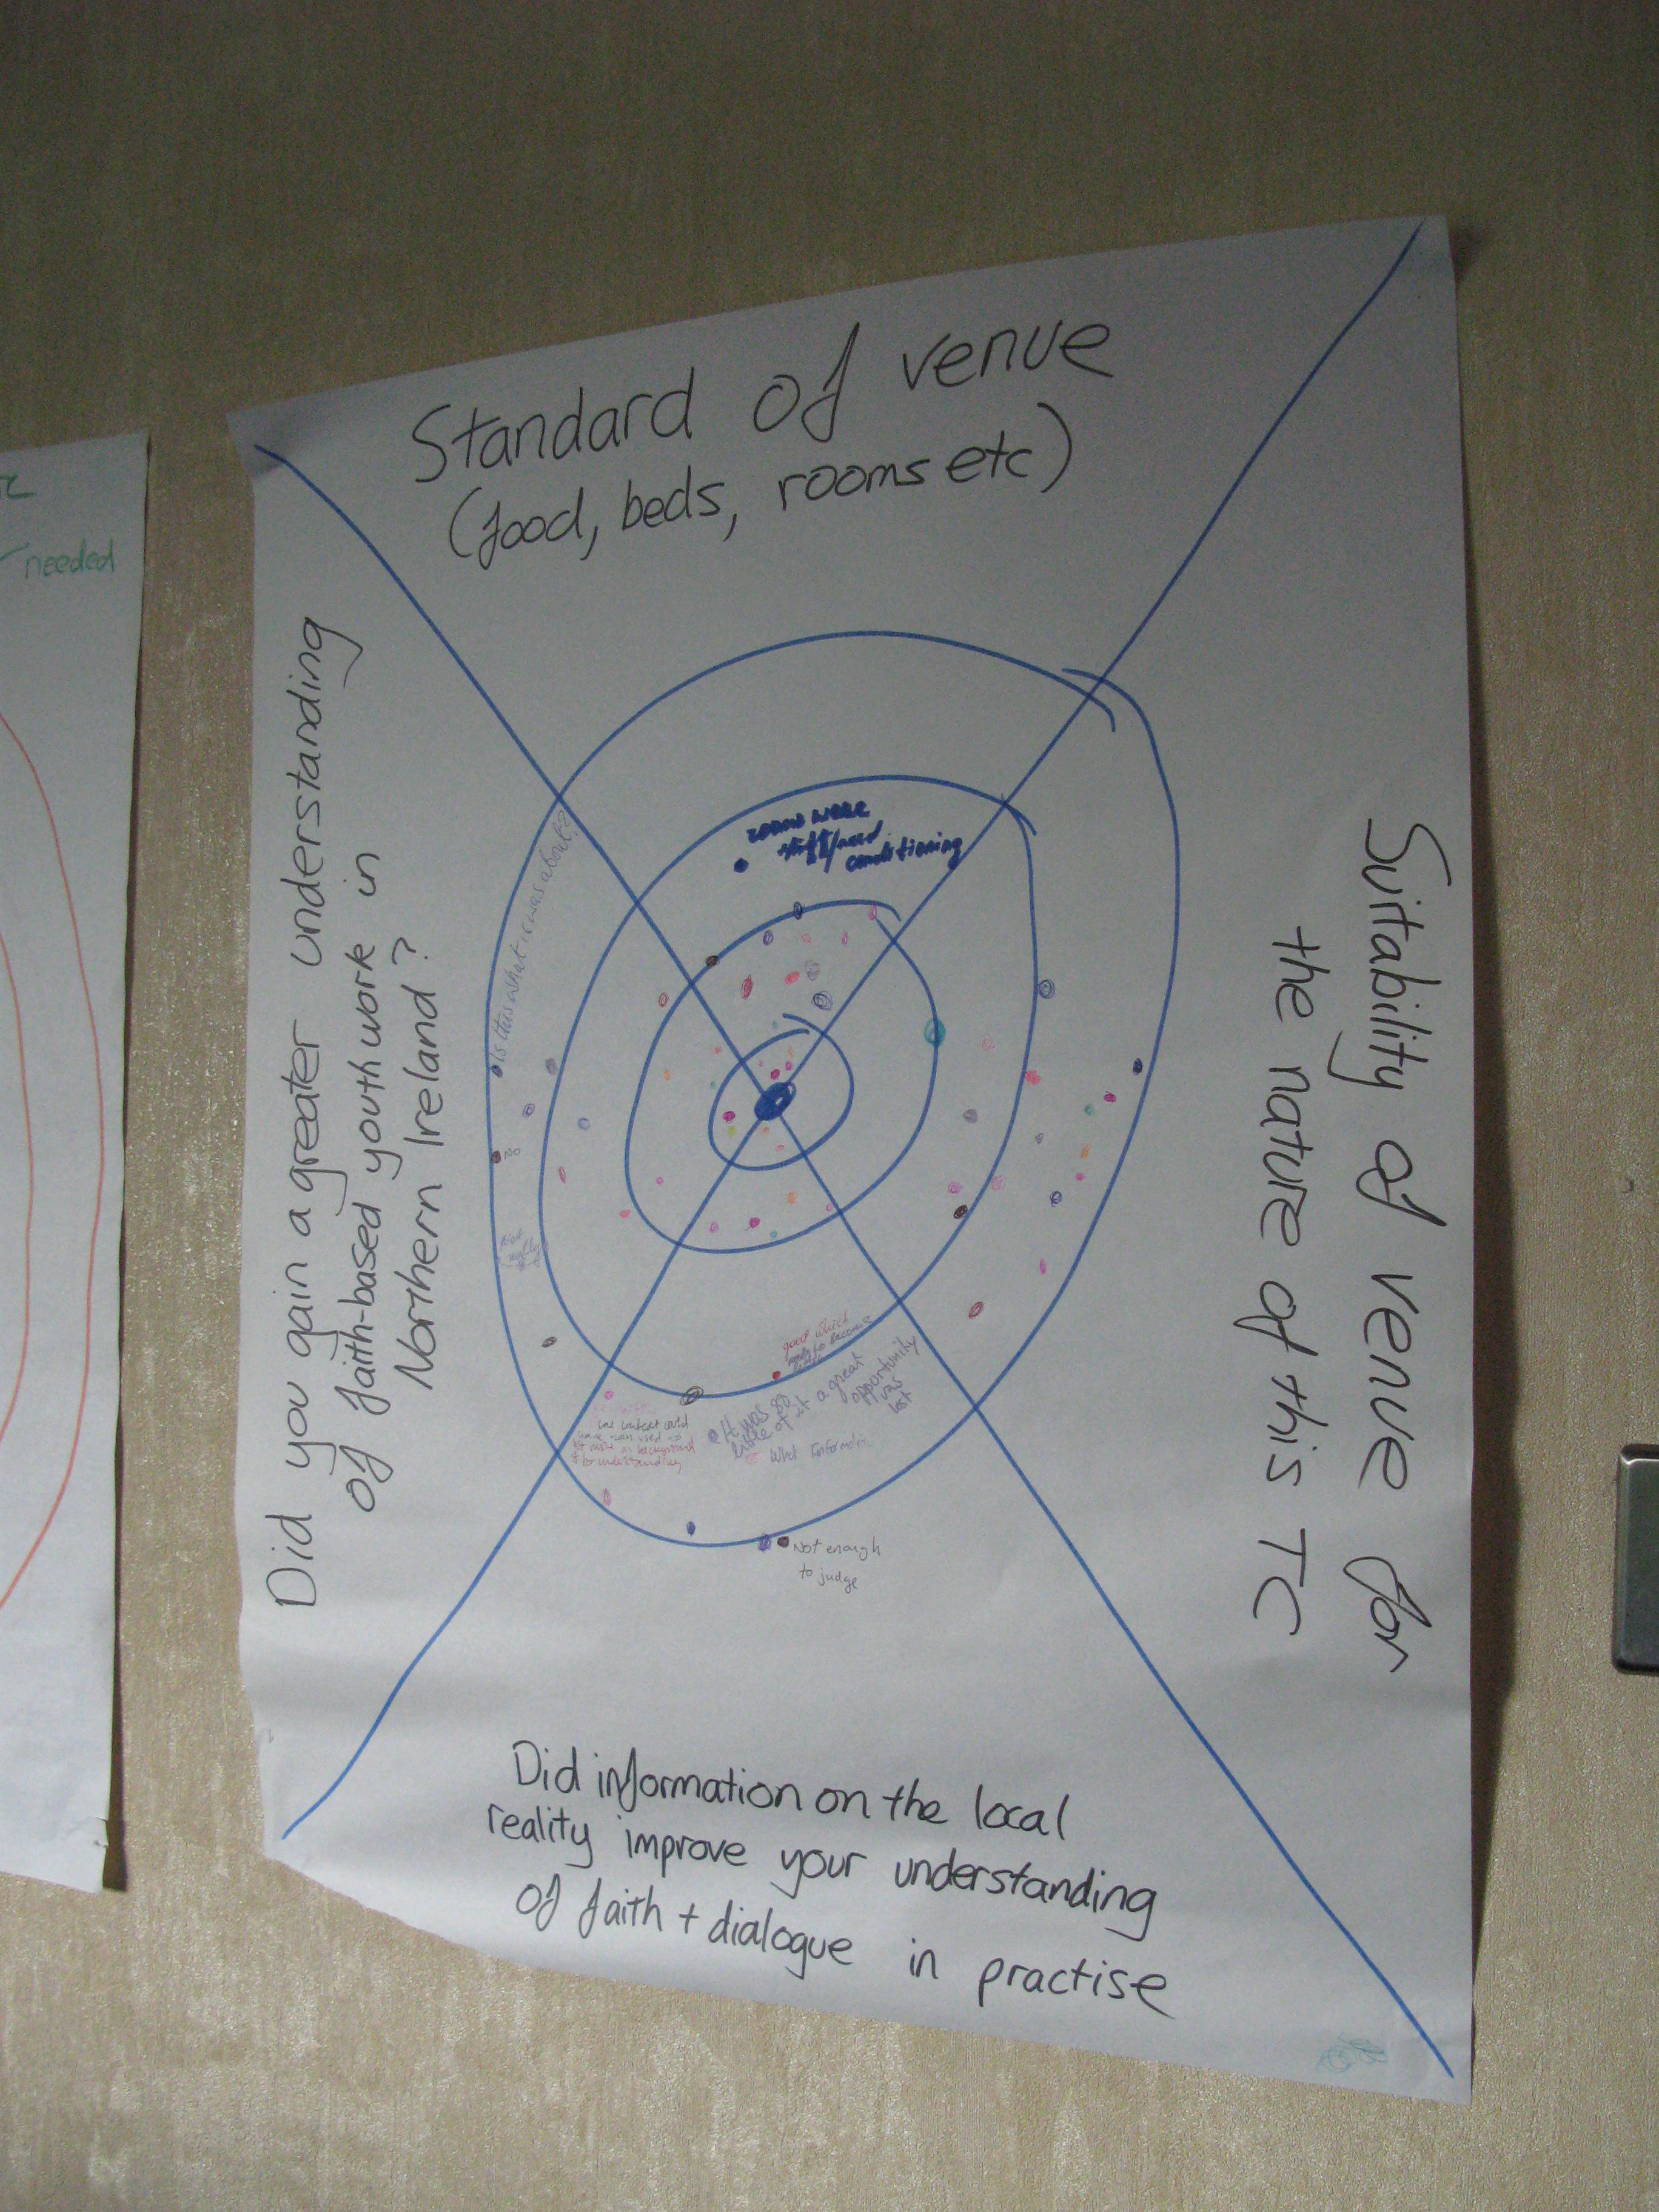 needed
Standard of venue
(food, beds, rooms etc)
Suitability of venue for
the nature of this TC
Did you gain a greater understanding
of faith-based youth work in
Northern Ireland?
rooms were
conditioning
Is this what it was about?
No
Not
really
good which
It was so
a great
opportunity
was
lost
What
context could
as background
to understanding
Not enough
to judge
Did information on the local
reality improve your understanding
of faith + dialogue in practise